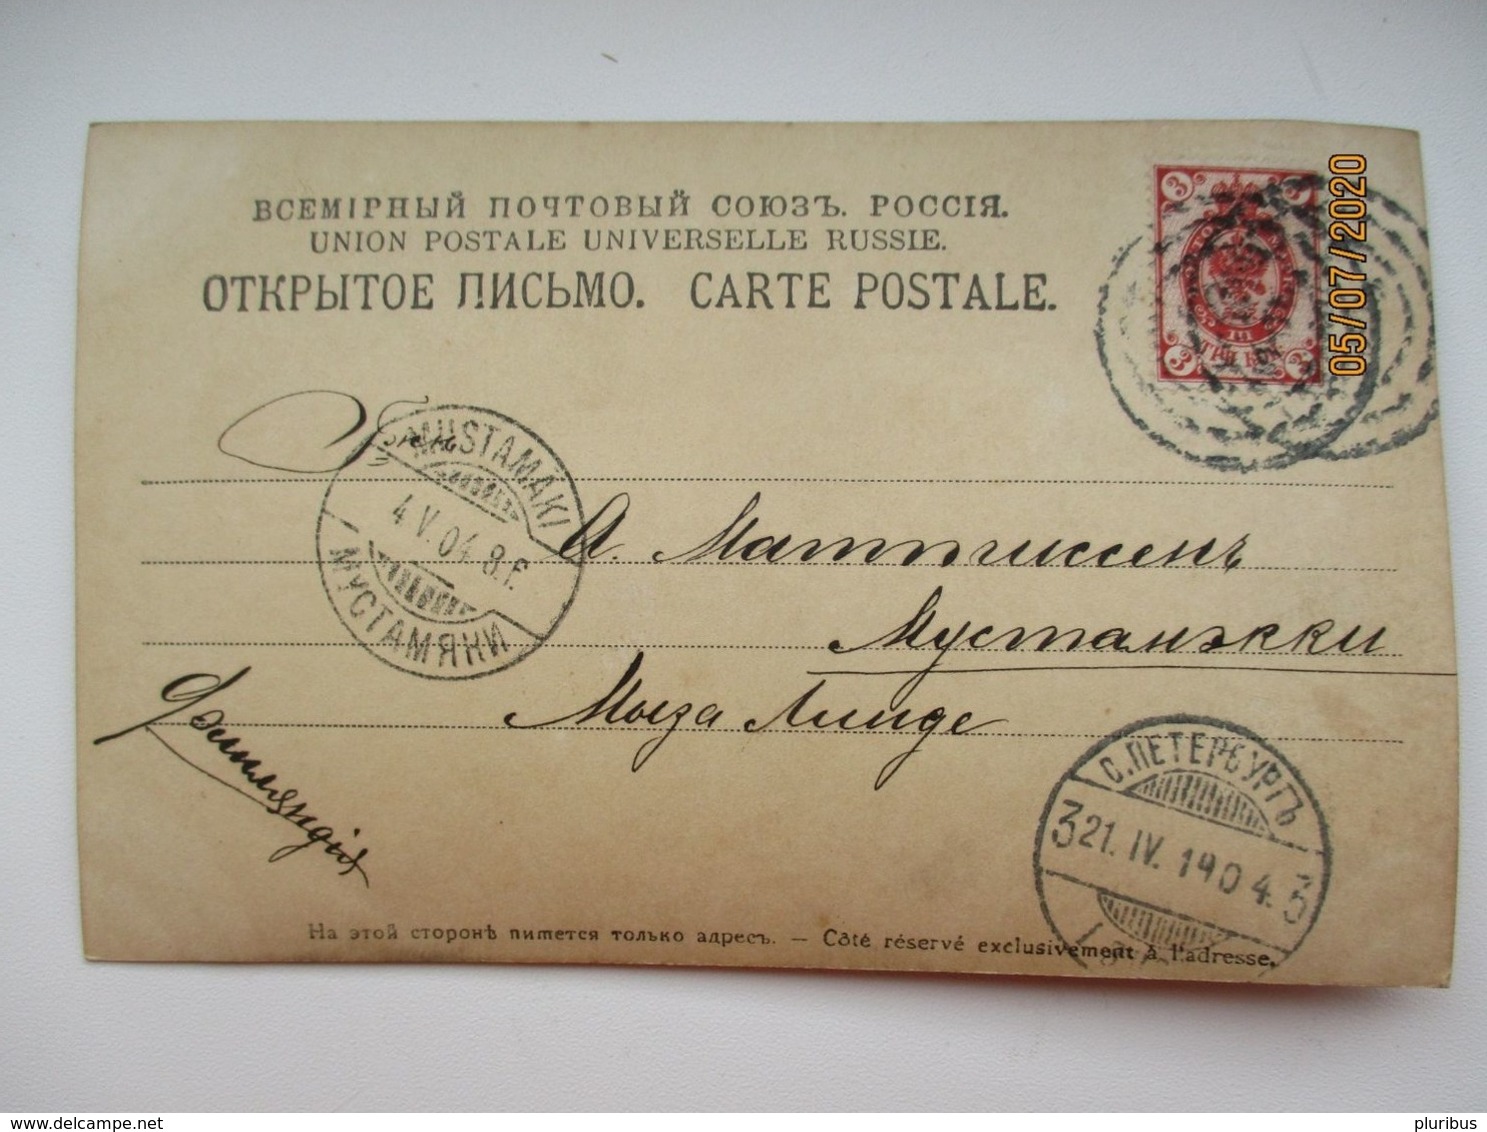 ВСЕМІРНЫЙ ПОЧТОВЫЙ СОЮЗЪ. РОССІЯ.
UNION POSTALE UNIVERSELLE RUSSIE.
ОТКРЫТОЕ ПИСЬМО. CARTE POSTALE.
3
3
ТРИ КОП.
3
05/07/2020
MUSTAMÄKI
4.V.04. 8.F.
МУСТАМЯКИ
А. Маттиссенъ
Мустамэкки
Мыза Линде
Фэнлиндія
С.ПЕТЕРБУРГЪ
3 21. IV. 1904. 3
На этой сторонѣ пишется только адресъ. — Côté réservé exclusivement à l'adresse.
delcampe.net
pluribus